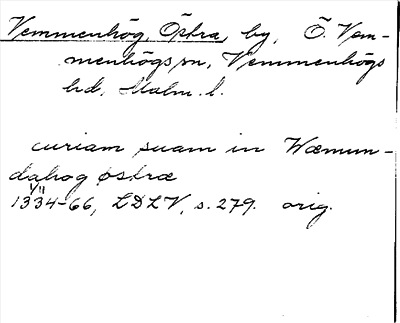 Vemmenhög, Östra, by, Ö. Vem-
menhögs sn, Vemmenhögs
hd, Malm. l.
curiam suam in Wæmun-
dahog østræ
1/11
1334-66, LDLV, s. 279. orig.